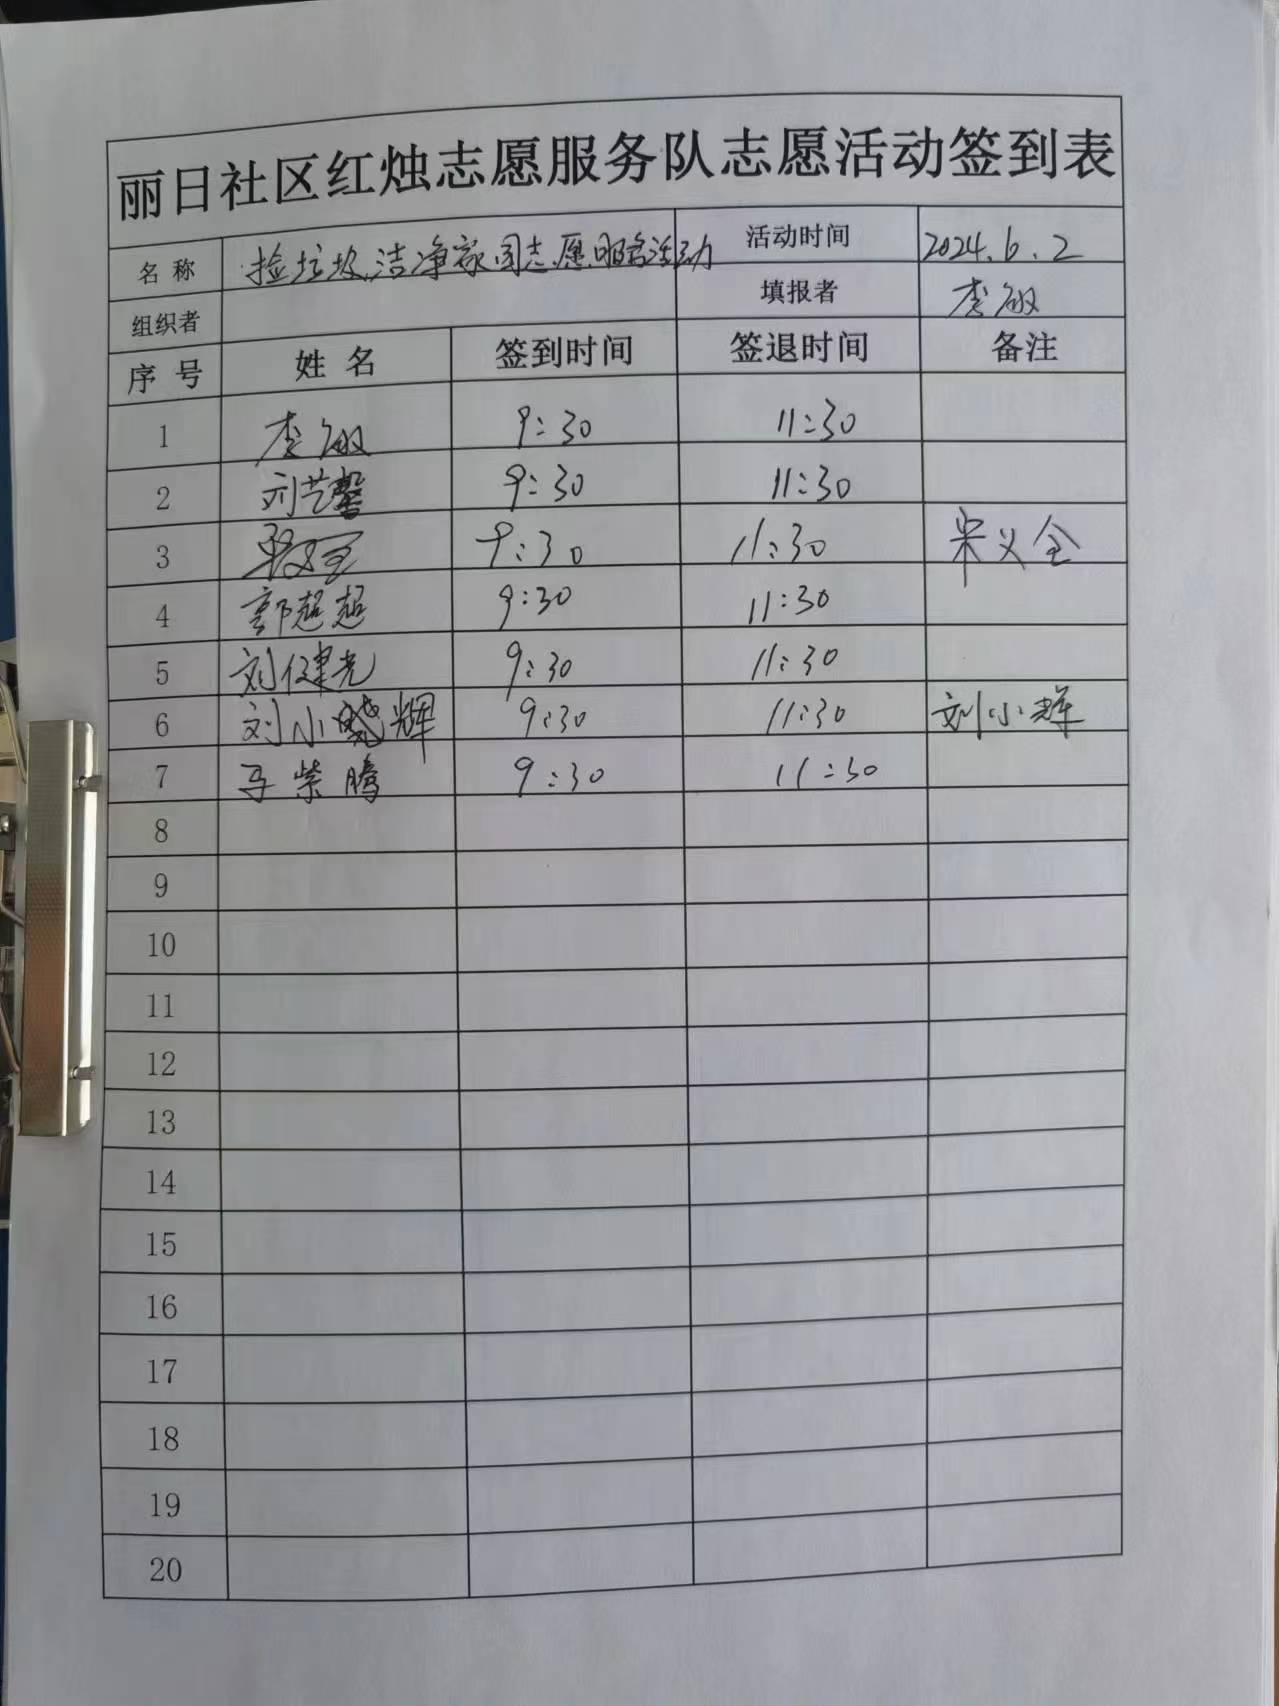 丽日社区红烛志愿服务队志愿活动签到表
名 称 捡垃圾,洁净家园志愿服务活动 活动时间 2024.6.2
组织者 填报者 李敏
序 号 姓 名 签到时间 签退时间 备注
1 李敏 9:30 11:30
2 刘艺馨 9:30 11:30
3 9:30 11:30 宋义全
4 郭超超 9:30 11:30
5 刘健光 9:30 11:30
6 刘小辉 9:30 11:30 刘小辉
7 马紫腾 9:30 11:30
8
9
10
11
12
13
14
15
16
17
18
19
20